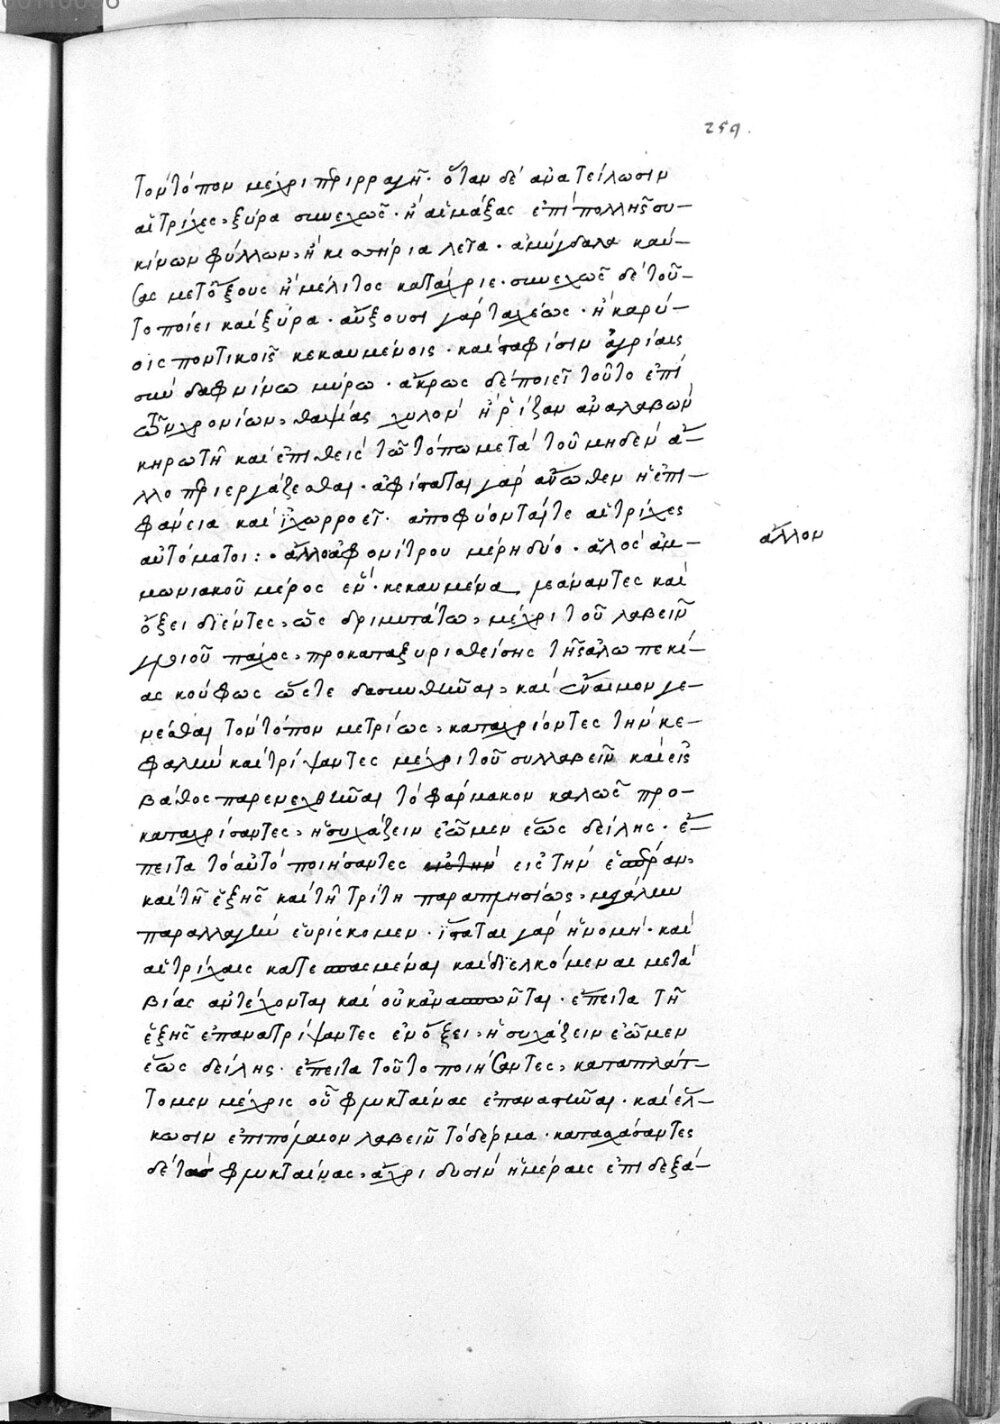 259.
τὸν τόπον μέχρι περιρραγῆ. ὅταν δὲ ἀνατείλωσιν
αἱ τρίχες, ξύρα συνεχῶς. ἢ αἱμάξας ἐπὶ πολλῆς συ-
κίνων φύλλων, ἢ κισσήρια λεῖα. ἀμύγδαλα καύ-
σας μετ' ὄξους ἢ μέλιτος κατάχριε. συνεχῶς δὲ τοῦ-
το ποίει καὶ ξύρα. αὔξουσι γὰρ ταχέως. ἢ καρύ-
οις ποντικοῖς κεκαυμένοις. καὶ σταφίσιν ἀγρίαις
σὺν δαφνίνω μύρω. ἄκρως δὲ ποιεῖ τοῦτο ἐπὶ
τῶν χρονίων, θαψίας χυλὸν ἢ ῥίζαν ἀναλαβὼν
κηρωτῆ καὶ ἐπιθεὶς τῶ τόπω μετὰ τοῦ μηδὲν ἄ-
λλο περιεργάζεσθαι. ἀφίσταται γὰρ ἄνωθεν ἡ ἐπι-
φάνεια καὶ ἰχωρροεῖ. ἀποφύονταί τε αἱ τρίχες
αὐτόματοι: ἄλλο ἀφρονίτρου μέρη δύο. ἁλὸς ἀμ-
ἄλλον
μωνιακοῦ μέρος ἕν. κεκαυμένα λεάναντες καὶ
ὄξει διέντες, ὡς δριμυτάτω, μέχρι τοῦ λαβεῖν
γλοιοῦ πάχος, προκαταξυρισθείσης τῆς ἀλωπεκί-
ας κούφως ὥστε δασυνθῆναι, καὶ ἔναιμον γε-
νέσθαι τὸν τόπον μετρίως, καταχρίοντες τὴν κε-
φαλὴν καὶ τρίψαντες μέχρι τοῦ συλλαβεῖν καὶ εἰς
βάθος παρενεχθῆναι τὸ φάρμακον καλῶς προ-
καταχρίσαντες, ἡσυχάζειν ἐῶμεν ἕως δείλης. ἔ-
πειτα τὸ αὐτὸ ποιήσαντες εἰς τὴν ἕσπέραν,
καὶ τῆ ἑξῆς καὶ τῆ τρίτη παραπλησίως, μεγάλην
παραλλαγὴν εὑρίσκομεν. ἵσταται γὰρ ἡ νομή. καὶ
αἱ τρίχαις κατεσπασμέναι καὶ διελκόμεναι μετὰ
βίας ἀντέχονται καὶ οὐκ ἀνασπῶνται. ἔπειτα τῆ
ἑξῆς ἐπανατρίψαντες ἐν ὄξει, ἡσυχάζειν ἐῶμεν
ἕως δείλης. ἔπειτα τοῦτο ποιήσαντες, καταπλάτ-
τομεν μέχρις οὗ φλυκταίνας ἐπαναστῆναι. καὶ ἕλ-
κωσιν ἐπιπόλαιον λαβεῖν τὸ δέρμα. καταχάσαντες
δὲ τὰς φλυκταίνας, ἄχρι δυσὶν ἡμέραις ἐπιδεξά-